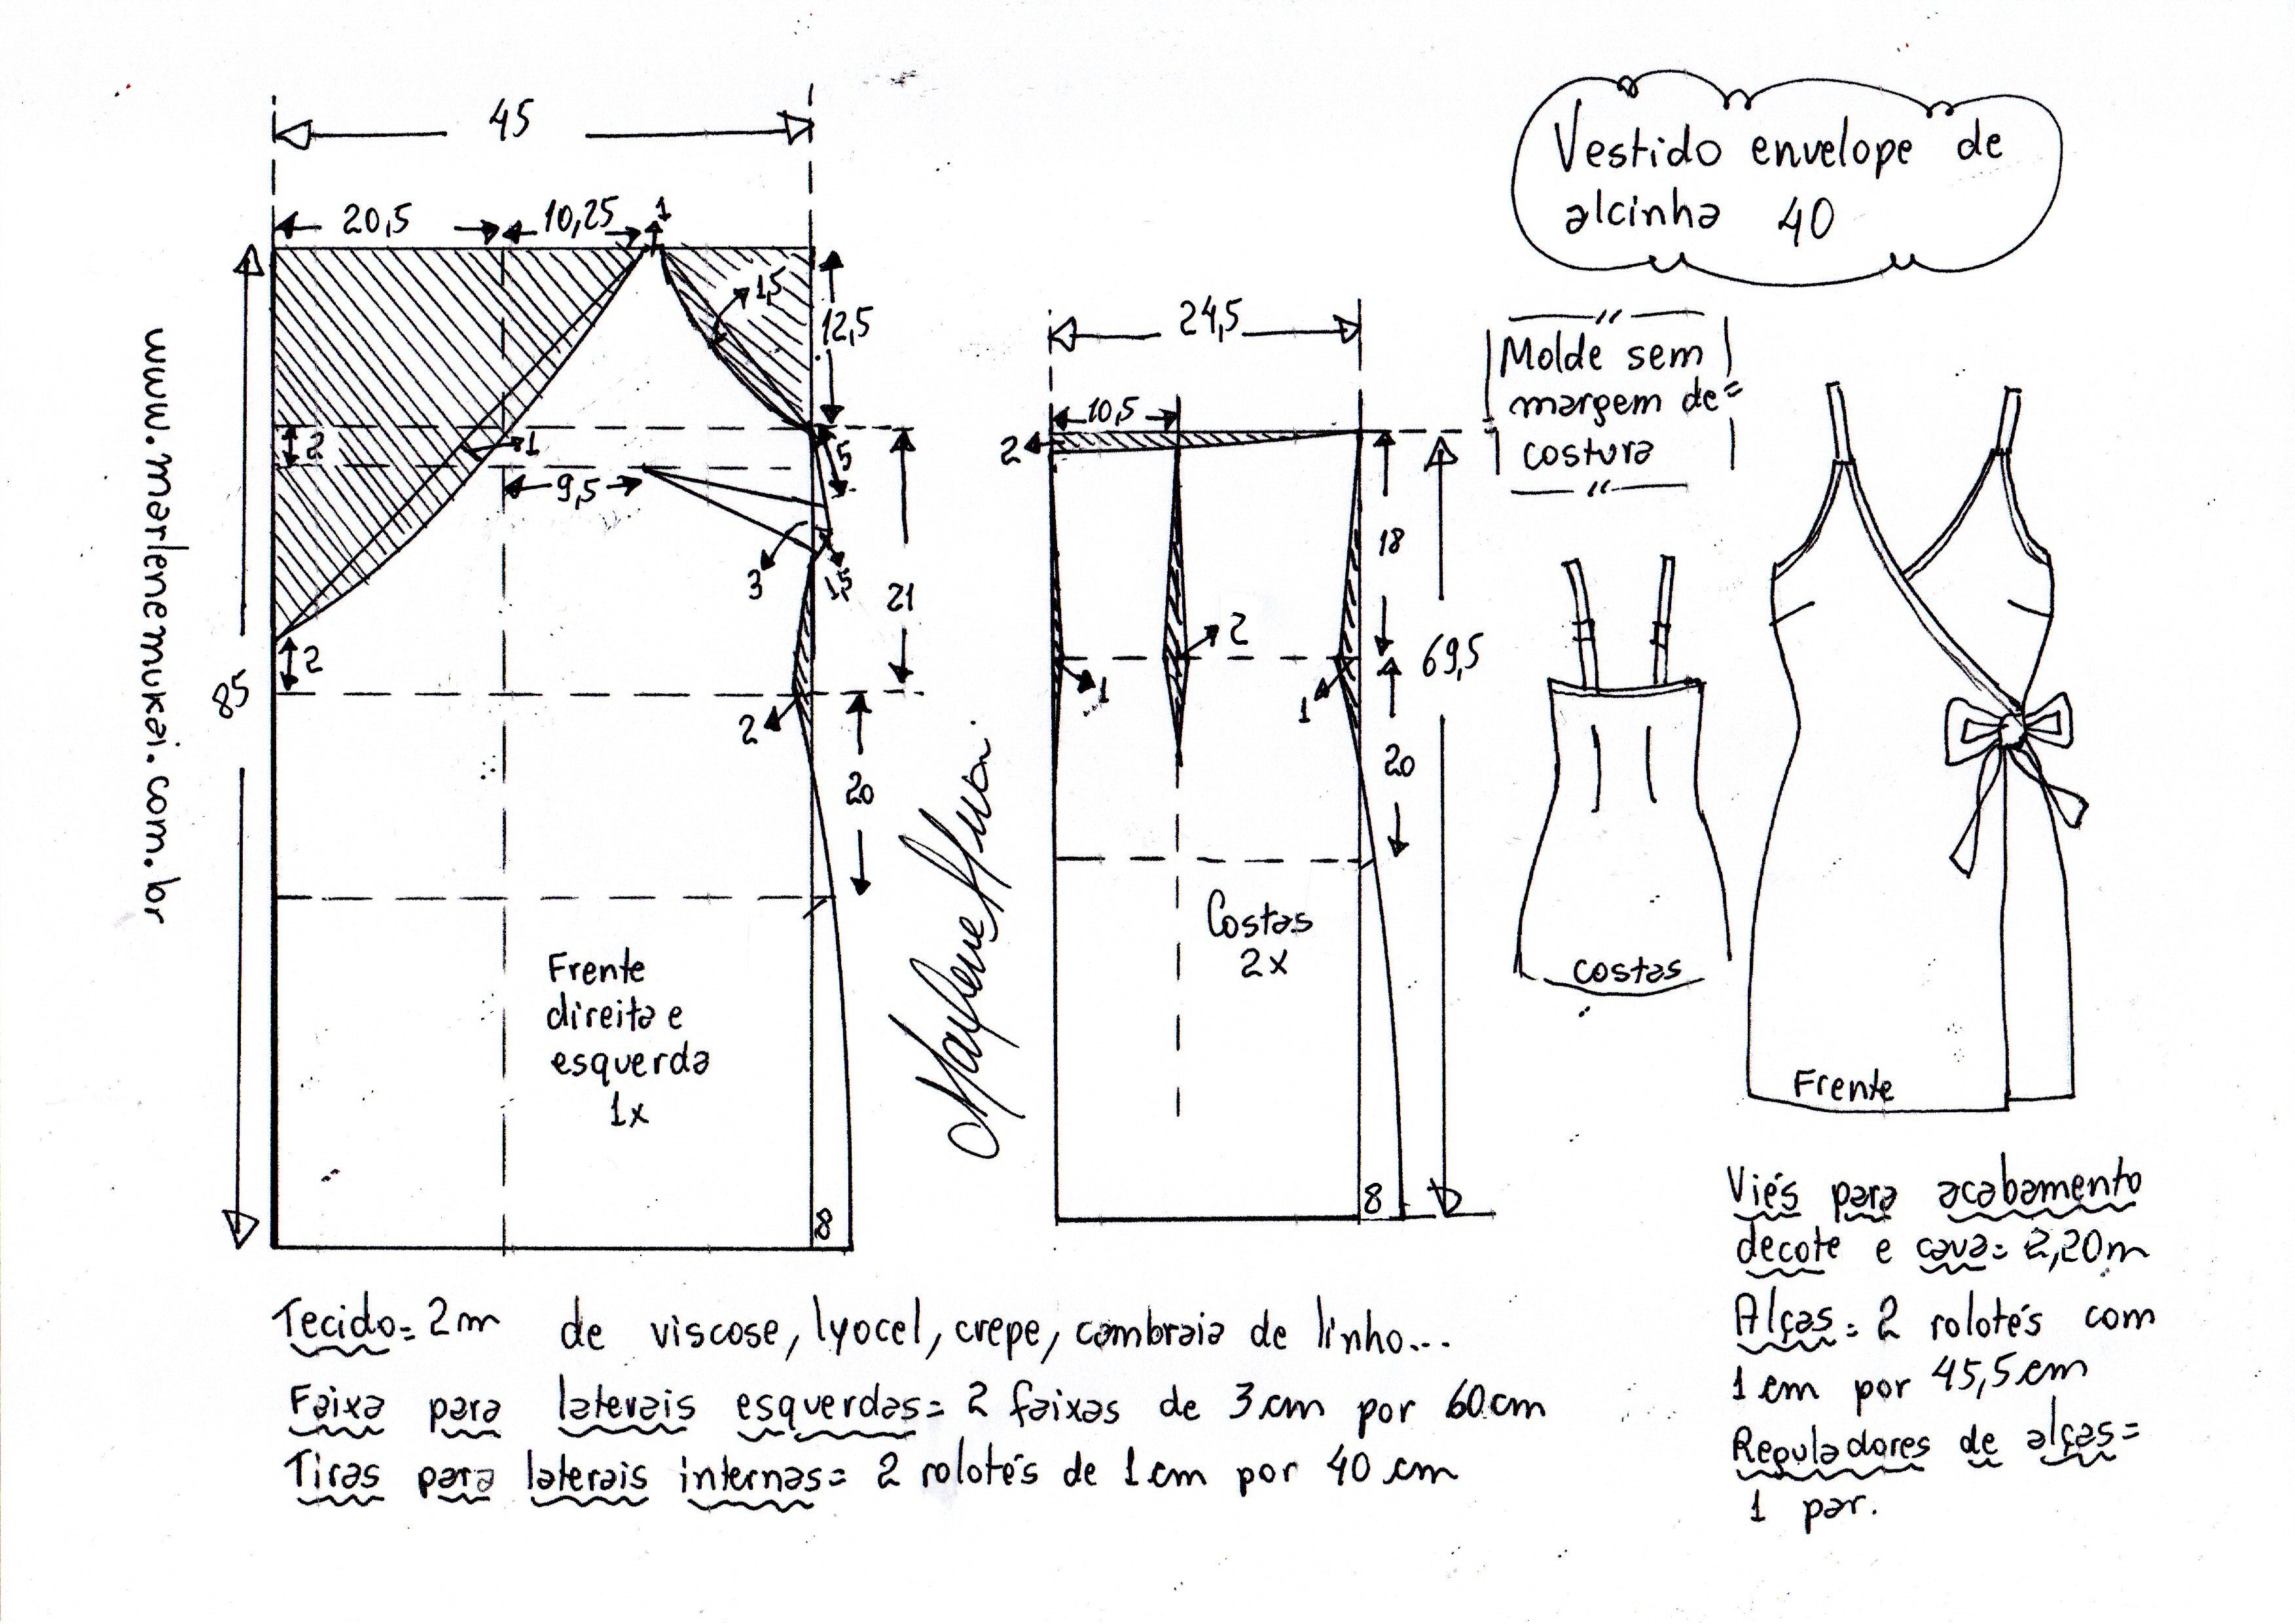 Vestido envelope de
alcinha 40
Molde sem
margem de=
costura
www.marlenemukai.com.br
45
20,5
10,25
1
1,5
12,5
2
1
5
9,5
3
1,5
21
2
85
2
20
Frente
direita e
esquerda
1x
8
24,5
10,5
2
18
2
1
1
69,5
20
Costas
2x
8
costas
Frente
Tecido= 2m de viscose, lyocel, crepe, cambraia de linho...
Faixa para laterais esquerdas= 2 faixas de 3cm por 60cm
Tiras para laterais internas= 2 rolotés de 1cm por 40 cm
Viés para acabamento
decote e cava= 2,20m
Alças= 2 rolotés com
1cm por 45,5cm
Reguladores de alças=
1 par.